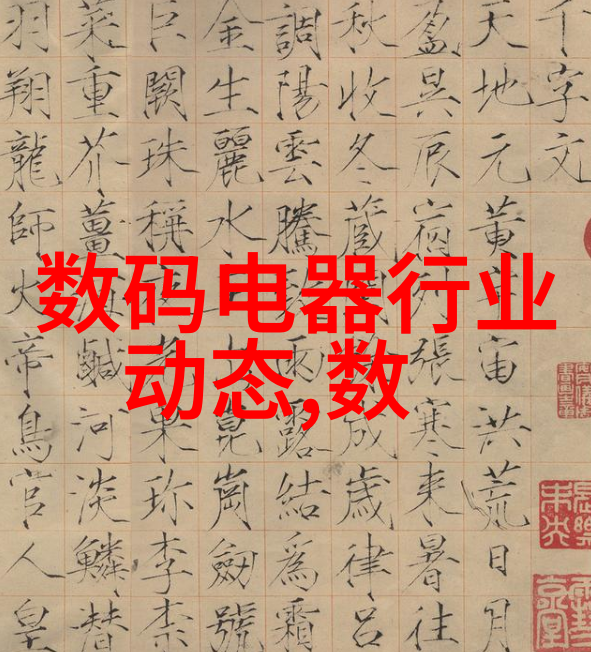 数码电器行业
动态,数
千字文
天地元黄宇宙洪荒日月
盈昃辰宿列張寒来暑往
秋收冬蔵閏成歲律吕
調陽雲騰雨露結為霜
金生麗水崑崗劍號
巨闕珠稱夜菓珍李柰
菜重芥薑海鹹河淡鱗潜
羽翔龍師火帝鳥官人皇